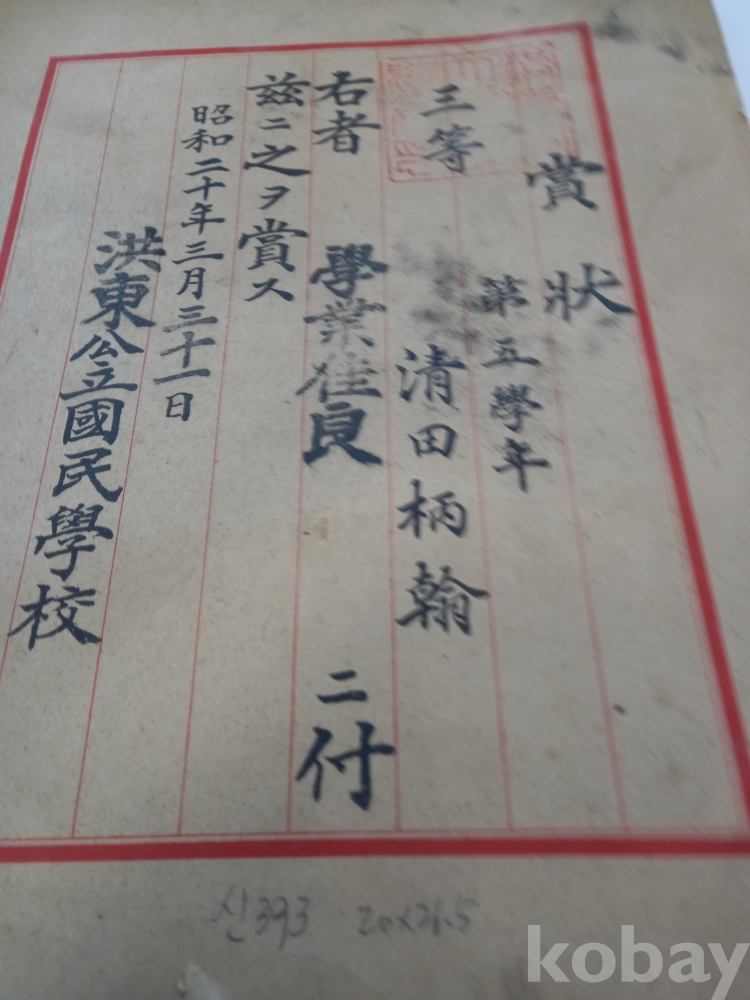 賞狀
第五學年
三等
清田柄翰
右者 學業佳良 二付
玆ニ之ヲ賞ス
昭和二十年三月三十一日
洪東公立國民學校
신393 20x26.5
kobay